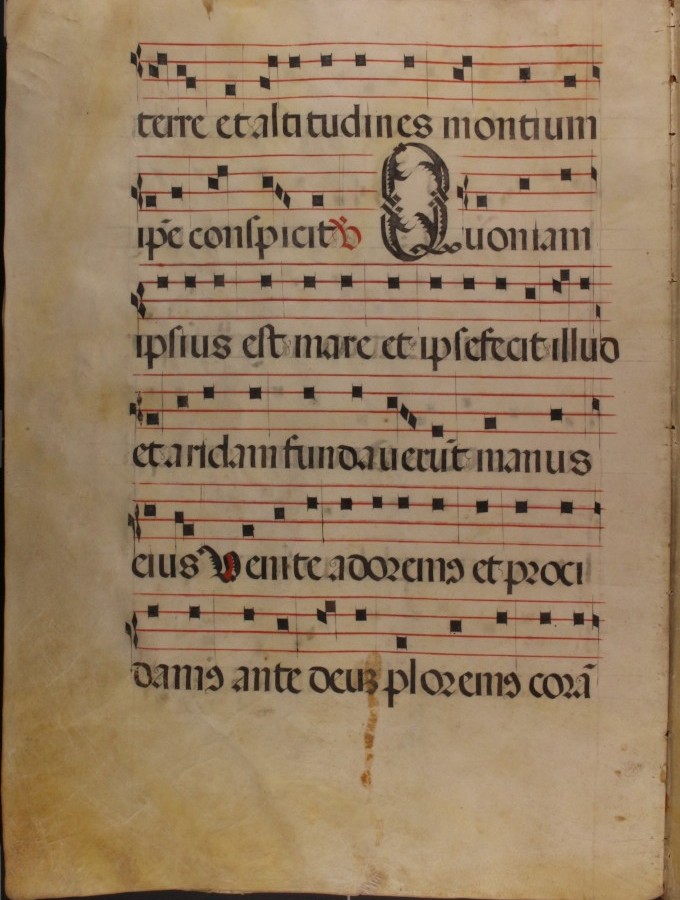 terre et altitudines montium
ip̄e conspicit ℣ Quoniam
ipsius est mare et ipse fecit illud
et aridam fundauerūt manus
eius Venite adoremꝰ et proci
damꝰ ante deuꝫ ploremꝰ corā